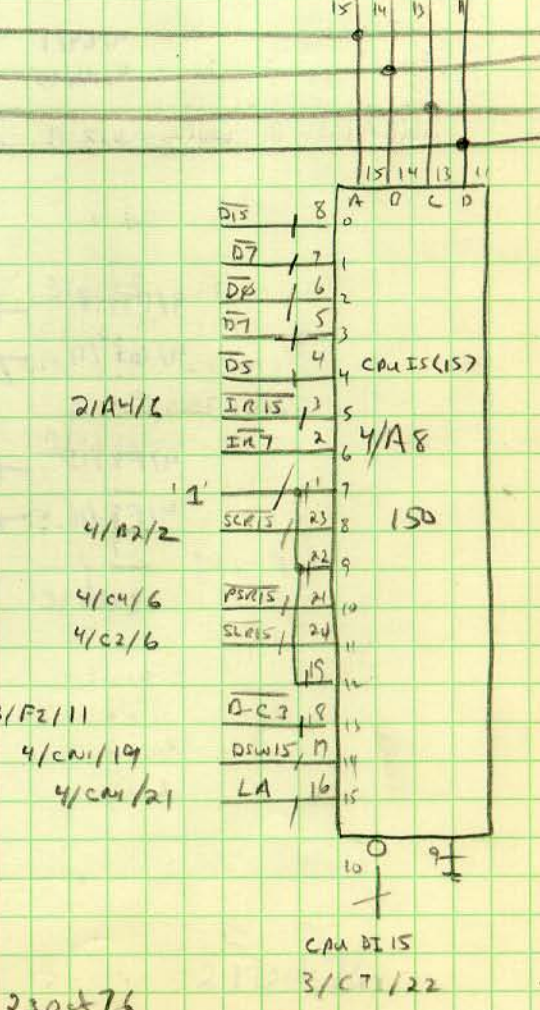 15 14 13 11
15 14 13 11
A B C D
D15 8 0
D7 7 1
D0 6 2
D7 5 3
D5 4 4
CPU IS(15)
21A4/6 IR15 3 5
IR7 2 6
4/A8
'1' 1 7
150
4/B2/2 SCR15 23 8
22 9
4/C4/6 PSR15 21 10
4/C2/6 SLR15 20 11
19 12
/F2/11 B-C3 18 13
4/CN1/19 DSW15 17 14
4/CN1/21 LA 16 15
10 9
CPU DI 15
3/C7/22